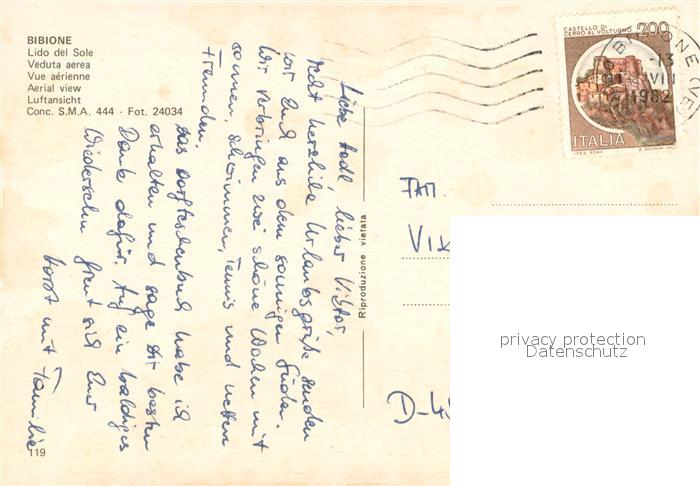 BIBIONE
Lido del Sole
Veduta aerea
Vue aérienne
Aerial view
Luftansicht
Conc. S.M.A. 444 - Fot. 24034
Liebe Hedl, lieber Viktor,
recht herzliche Urlaubsgrüße senden
wir Euch aus dem sonnigen Süden.
Wir verbringen zwei schöne Wochen mit
sonnen, schwimmen, Tennis und netten
Freunden.
Das habe ich
erhalten und sage Dir besten
Dank dafür. Auf ein baldiges
Wiedersehn freut sich Euer
Horst mit Familie
119
Riproduzione vietata
CASTELLO DI
CERRO AL VOLTURNO
200
ITALIA
BIBIONE (VE)
13
VII
1982
FAM.
VIK
D-4
privacy protection
Datenschutz